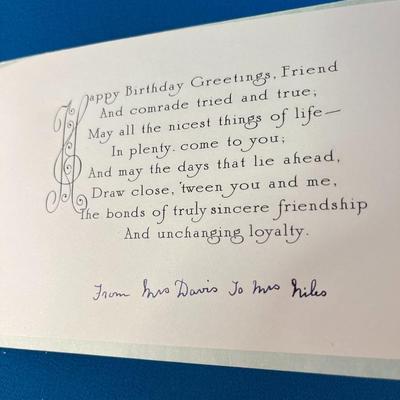 Happy Birthday Greetings, Friend
And comrade tried and true;
May all the nicest things of life—
In plenty. come to you;
And may the days that lie ahead,
Draw close, 'tween you and me,
The bonds of truly sincere friendship
And unchanging loyalty.
From Mrs Davis To Mrs Niles